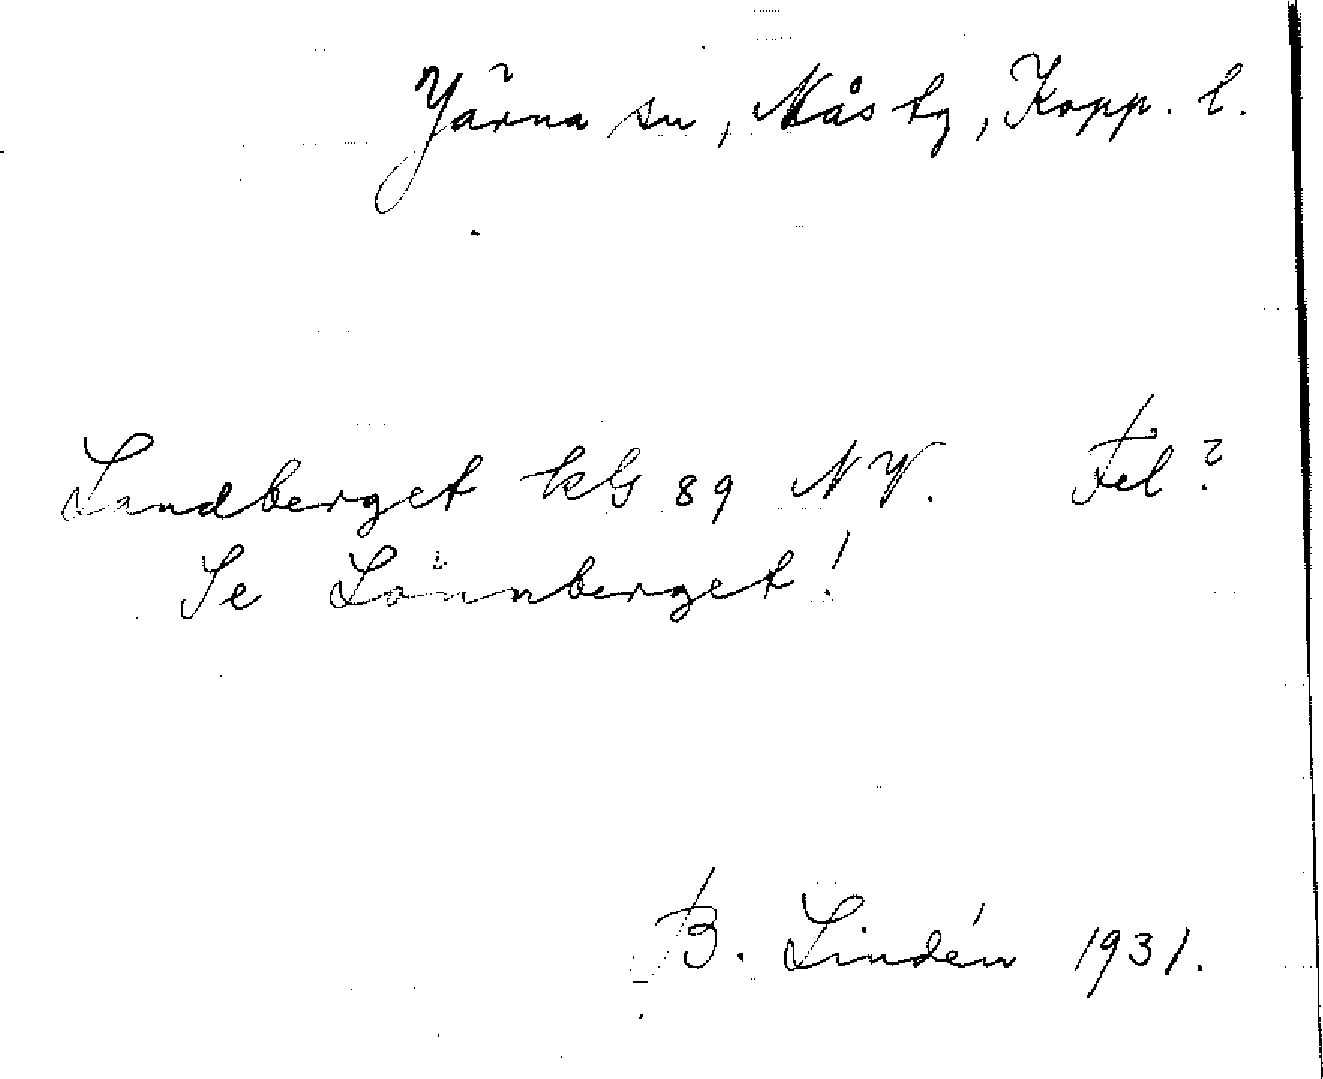 Järna sn, Nås tg, Kopp. l.
Landberget kbl 89 NV. Fel?
Se Lönnberget!
B. Lindén 1931.